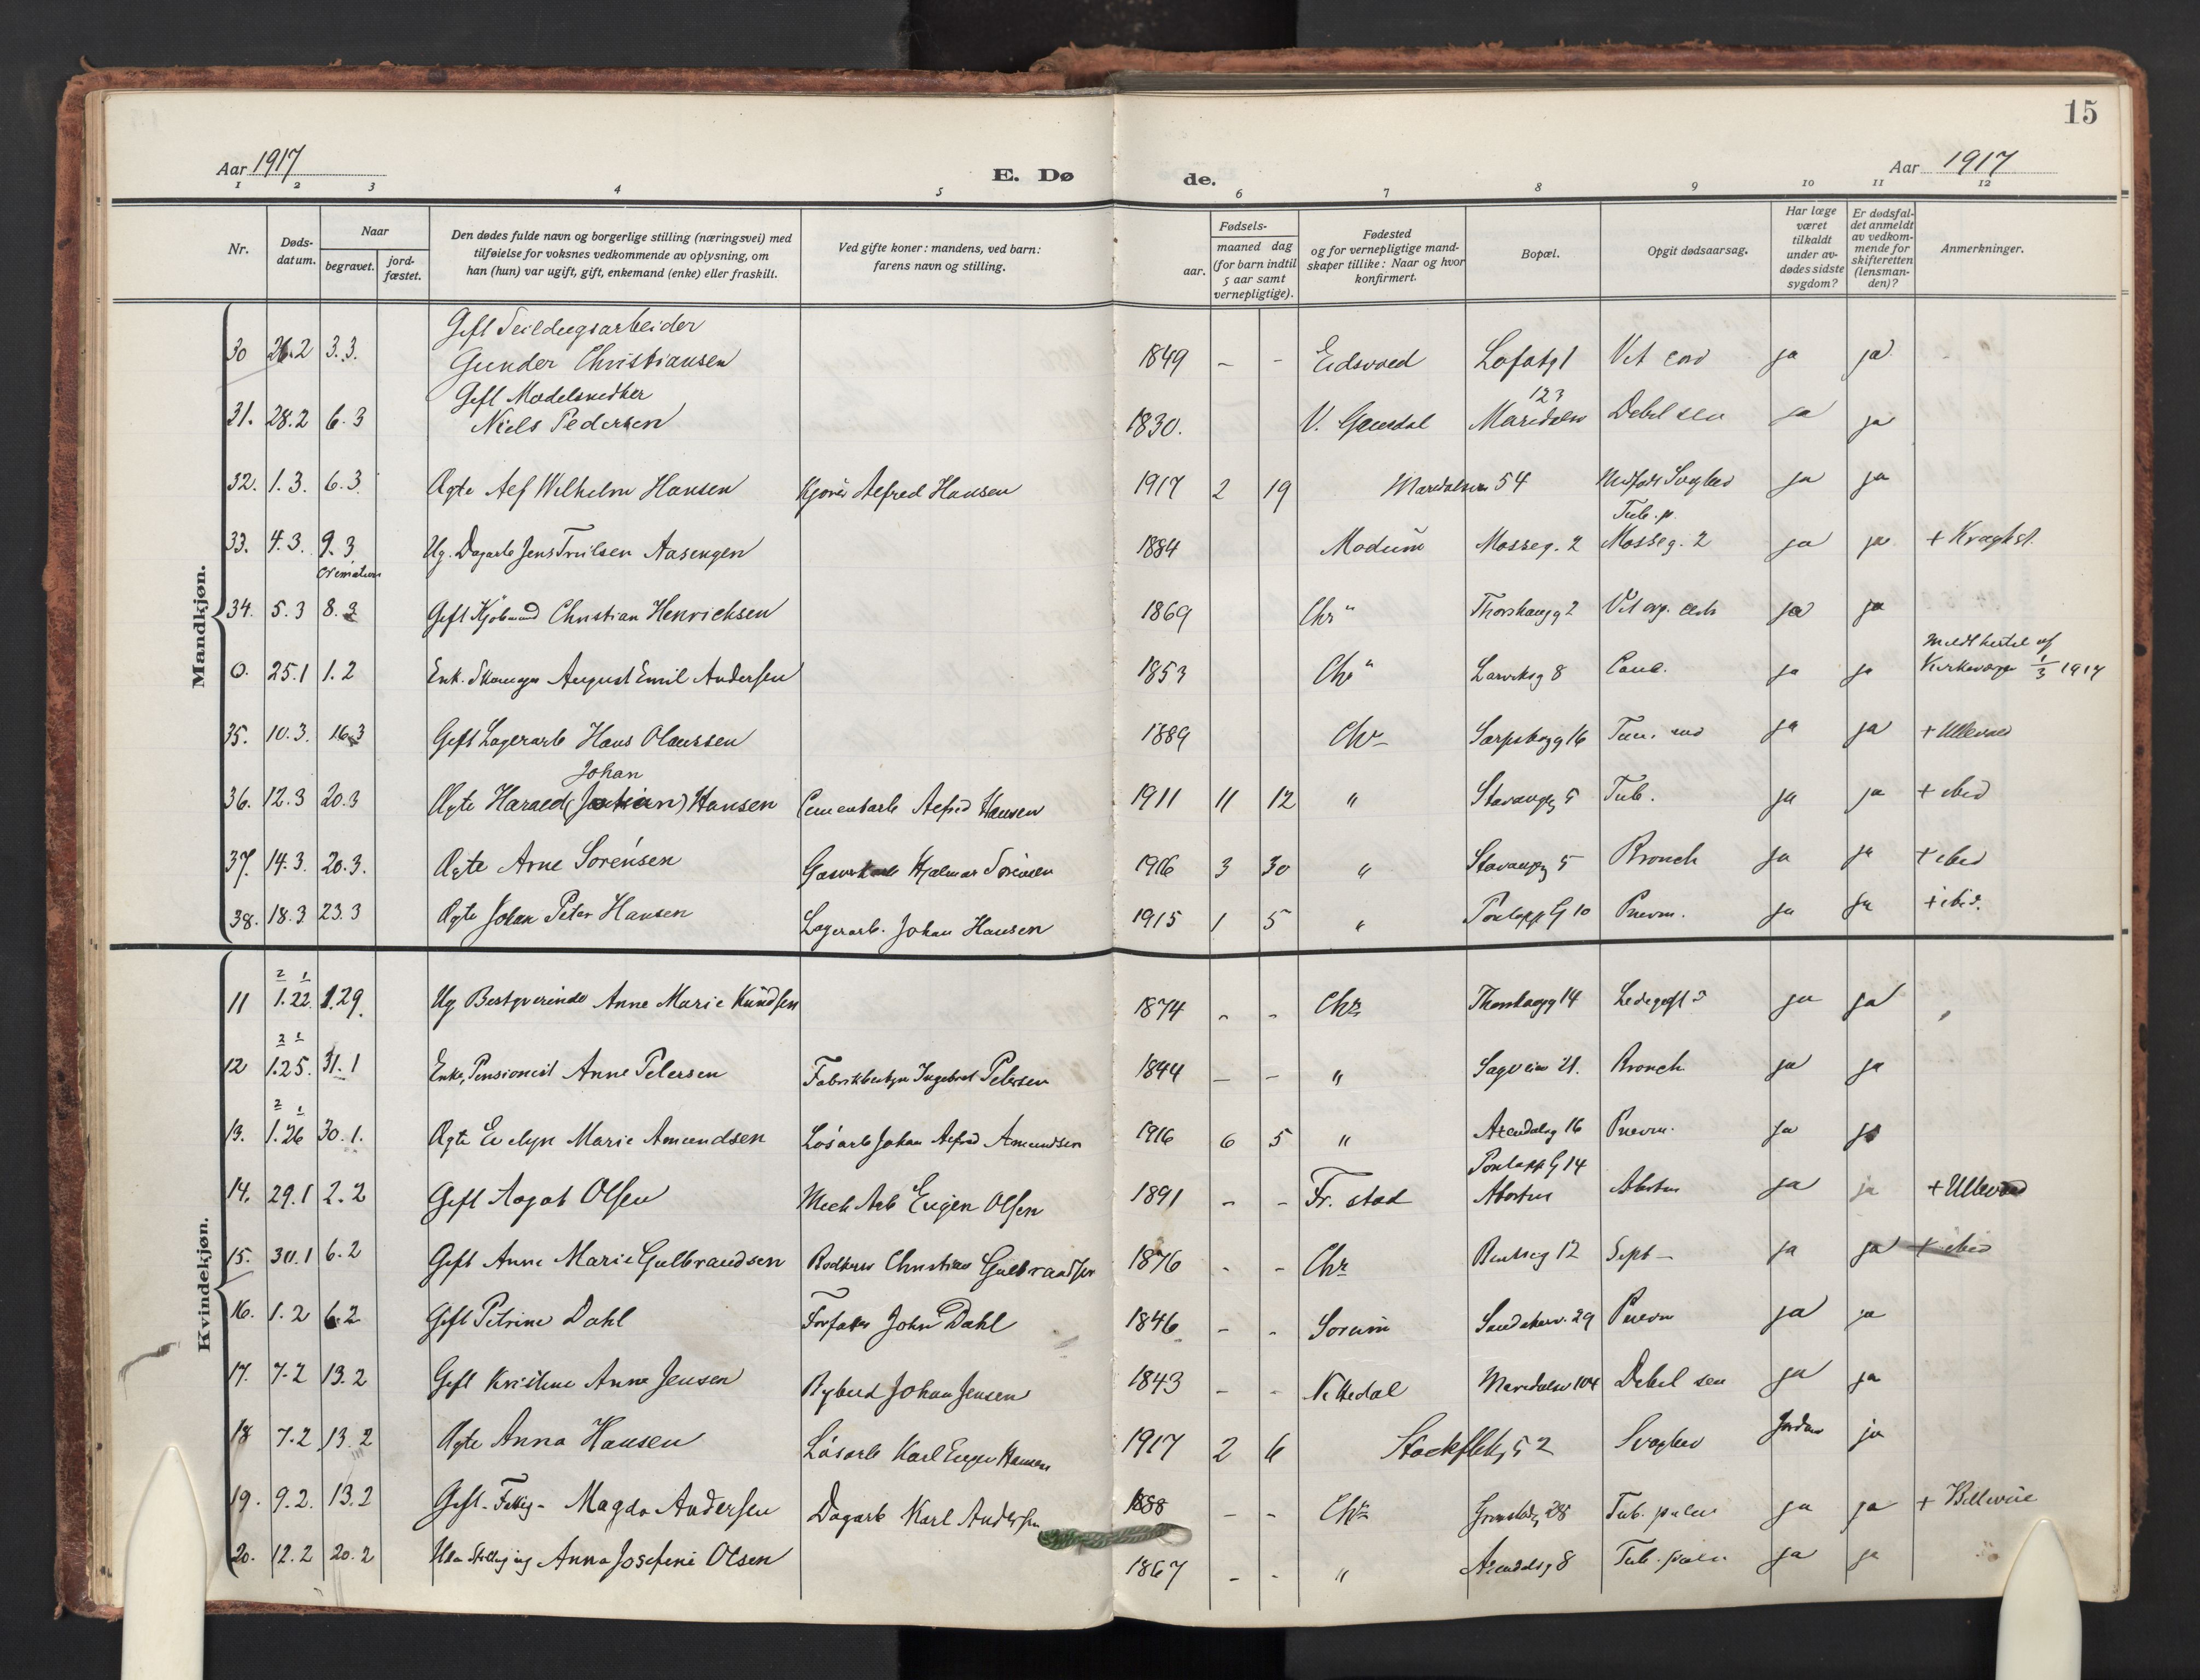 15
Aar 1917
E. Dø de.
Aar 1917
1 2 3 4 5 6 7 8 9 10 11 12
Nr.
Døds-
datum.
Naar
begravet.
jord-
fæstet.
Den dødes fulde navn og borgerlige stilling (næringsvei) med
tilføielse for voksnes vedkommende av oplysning, om
han (hun) var ugift, gift, enkemand (enke) eller fraskilt.
Ved gifte koner: mandens, ved barn:
farens navn og stilling.
Fødsels-
aar.
maaned dag
(for barn indtil
5 aar samt
vernepligtige).
Fødested
og for vernepligtige mand-
skaper tillike: Naar og hvor
konfirmert.
Bopæl.
Opgit dødsaarsag.
Har læge
været
tilkaldt
under av-
dødes sidste
sygdom?
Er dødsfal-
det anmeldt
av vedkom-
mende for
skifteretten
(lensman-
den)?
Anmerkninger.
Mandkjøn.
Gift Seildugsarbeider
30 26.2 3.3. Gunder Christiansen 1849 - - Eidsvold ja ja
Gift Modelsnedker
123
31. 28.2 6.3 Niels Pedersen 1830. V. Gausdal Maridalsv Debil sen ja ja
32. 1.3. 6.3. Ægte Alf Wilhelm Hansen Alfred Hansen 1917 2 19 Maridalsvn 54 Medfødt Svaghed ja ja
Tub. p.
33. 4.3. 9.3 Ug. Dagarb Jens Aasengen 1884 Modum Mosseg. 2 Mosseg. 2 ja ja
Cremation
34. 5.3 8.3 Gift Kjøbmand Christian Henricksen 1869 Chr " Thorshaugg 2 ja ja
Meldt hertil af
0. 25.1 1.2 Enk. August Emil Andersen 1853 Chr " Larviksg 8 Canc. ja ja Kirkeverge 1/3 1917
35. 10.3. 16.3 Gift Lagerarb Hans Olaussen 1889 Chr Sarpsborgg 16 ja ja + Ullevaal
Johan
36. 12.3 20.3 Ægte Harald Hansen Cementarb Alfred Hansen 1911 11 12 " Stavangg 5 Tub. ja ja + ibid
37. 14.3. 20.3. Ægte Arne Sorensen Hjalmar Sorensen 1916 3 30 " Stavangg 5 Bronch ja ja + ibid
38. 18.3 23.3 Ægte Johan Peter Hansen Lagerarb. Johan Hansen 1915 1 5 " Pontoppg 10 Pnevm. ja ja + ibid.
Kvindekjøn.
2 1
11 1.22. 1.29. Ug Bestyrerinde Anne Marie Knudsen 1874 - - Chr Thorshaugg 14 Ledegigt ja ja
2 1
12 1.25. 31.1 Enke, Pensionist Anne Petersen Fabrikbestyr Ingebret Petersen 1844 - - " Bronch ja ja
2 1
13. 1.26 30.1. Ægte Evelyn Marie Amundsen Løsarb Johan Alfred Amundsen 1916 6 5 " Arendalsg 16 Pnevm. ja ja
Pontoppg 14
14. 29.1 2.2 Gift Aagot Olsen Mech Arb Eugen Olsen 1891 - - Fr. stad Abortus Abortus ja ja + Ullevaal
15. 30.1 6.2 Gift Anne Marie Gulbrandsen Christian Gulbrandsen 1876 - - Chr Bentseg 12 Sept ja ja + ibid
16. 1.2 6.2 Gift Petrine Dahl John Dahl 1846 - - Sorum Sandakerv. 29 Pnevm ja ja
17. 7.2 13.2 Gift Kristine Anne Jensen Bybud Johan Jensen 1843 - - Nittedal Maridalsv 104 Debil sen ja ja
18 7.2 13.2 Ægte Anna Hansen Løsarb Karl Eugen Hansen 1917 2 6 Stockfletsg 52 Svaghed Jordm ja
19. 9.2. 13.2 Gift Magda Andersen Dagarb Karl Andersen 1888 - - Chr Grimstadg 28 Tub. pulm ja ja +
20. 12.2 20.2 Anna Josefine Olsen 1867 - - " Arendalsg 8 Tub. pulm ja ja